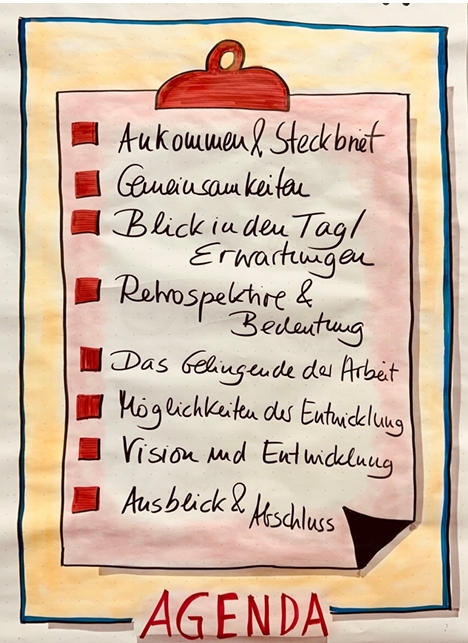 Ankommen & Steckbrief
Gemeinsamkeiten
Blick in den Tag/
Erwartungen
Retrospektive &
Bedeutung
Das Gelingende der Arbeit
Möglichkeiten der Entwicklung
Vision und Entwicklung
Ausblick & Abschluss
AGENDA